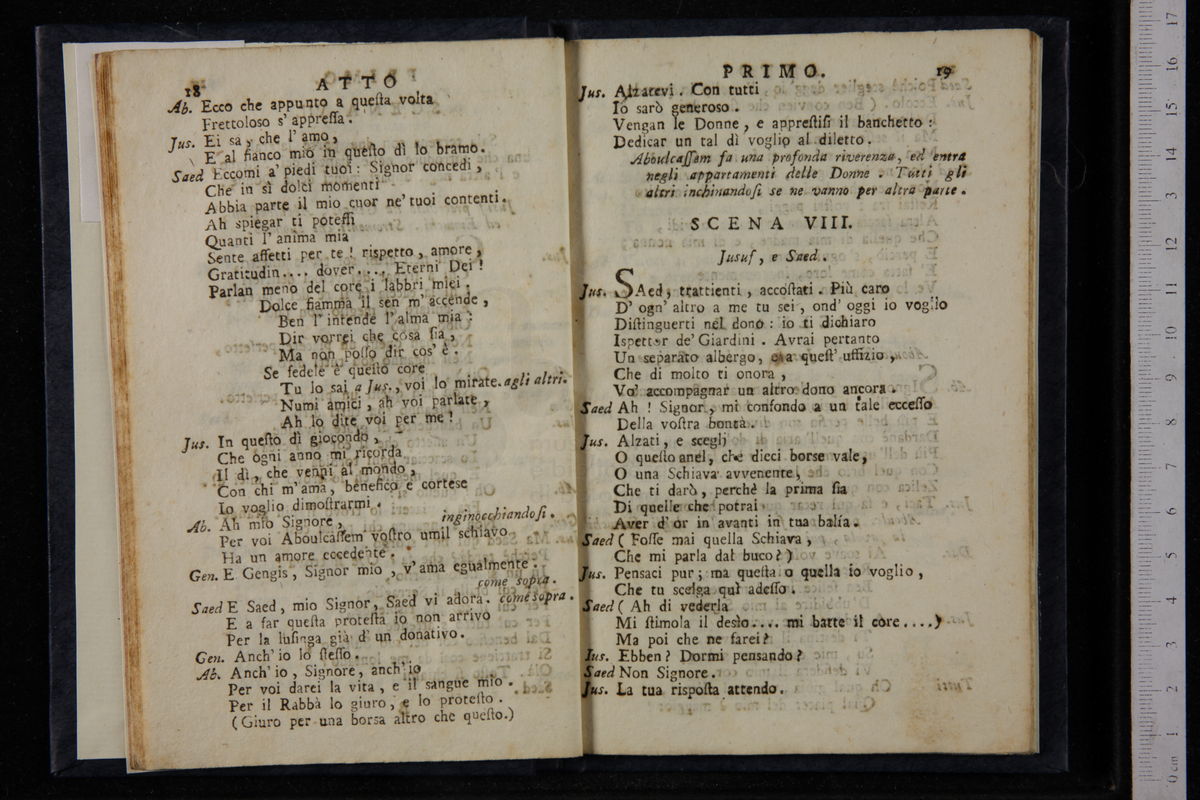 18
ATTO
Ab. Ecco che appunto a queſta volta
Frettoloso s' appreſſa.
Jus. Ei sa, che l' amo,
E al fianco mio in queſto dì lo bramo.
Saed Eccomi a' piedi tuoi: Signor concedi,
Che in sì dolci momenti
Abbia parte il mio cuor ne' tuoi contenti.
Ah spiegar ti poteſſi
Quanti l' anima mia
Sente affetti per te! rispetto, amore,
Gratitudin.... dover.... Eterni Dei!
Parlan meno del core i labbri miei.
Dolce fiamma il sen m' accende,
Ben l' intende l' alma mia:
Dir vorrei che cosa ſia,
Ma non poſſo dir cos' è.
Se fedele è queſto core
Tu lo sai a Jus., voi lo mirate. agli altri.
Numi amici, ah voi parlate,
Ah lo dite voi per me!
Jus. In queſto dì giocondo,
Che ogni anno mi ricorda
Il dì, che venni al mondo,
Con chi m' ama, benefico e cortese
Io voglio dimoſtrarmi.
Ab. Ah mio Signore, inginocchiandoſi.
Per voi Aboulcaſſem voſtro umil schiavo
Ha un amore eccedente.
Gen. E Gengis, Signor mio, v' ama egualmente.
come sopra.
Saed E Saed, mio Signor, Saed vi adora. come sopra.
E a far queſta proteſta io non arrivo
Per la luſinga già d' un donativo.
Gen. Anch' io lo ſteſſo.
Ab. Anch' io, Signore, anch' io
Per voi darei la vita, e il sangue mio.
Per il Rabbà lo giuro, e lo proteſto.
(Giuro per una borsa altro che queſto.)
PRIMO.
19
Jus. Alzatevi. Con tutti
Io sarò generoso.
Vengan le Donne, e appreſtiſi il banchetto:
Dedicar un tal dì voglio al diletto.
Aboulcaſſem fa una profonda riverenza, ed entra
negli appartamenti delle Donne. Tutti gli
altri inchinandoſi se ne vanno per altra parte.
SCENA VIII.
Jusuf, e Saed.
Jus. SAed, trattienti, accoſtati. Più caro
D' ogn' altro a me tu sei, ond' oggi io voglio
Diſtinguerti nel dono: io ti dichiaro
Ispettor de' Giardini. Avrai pertanto
Un separato albergo, e a queſt' uffizio,
Che di molto ti onora,
Vo' accompagnar un altro dono ancora.
Saed Ah! Signor, mi confondo a un tale ecceſſo
Della voſtra bontà.
Jus. Alzati, e scegli
O queſto anel, che dieci borse vale,
O una Schiava avvenente,
Che ti darò, perchè la prima ſia
Di quelle che potrai
Aver d' or in avanti in tua balìa.
Saed (Foſſe mai quella Schiava,
Che mi parla dal buco?)
Jus. Pensaci pur; ma queſta o quella io voglio,
Che tu scelga quì adeſſo.
Saed (Ah di vederla
Mi ſtimola il desìo.... mi batte il core....)
Ma poi che ne farei?
Jus. Ebben? Dormi pensando?
Saed Non Signore.
Jus. La tua risposta attendo.